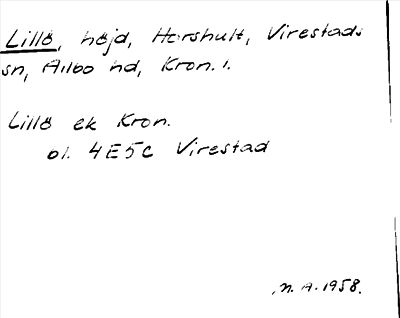 Lillö, höjd, Horshult, Virestads
sn, Allbo hd, Kron. l.
Lillö ek Kron.
bl. 4E5c Virestad
N.A. 1958.